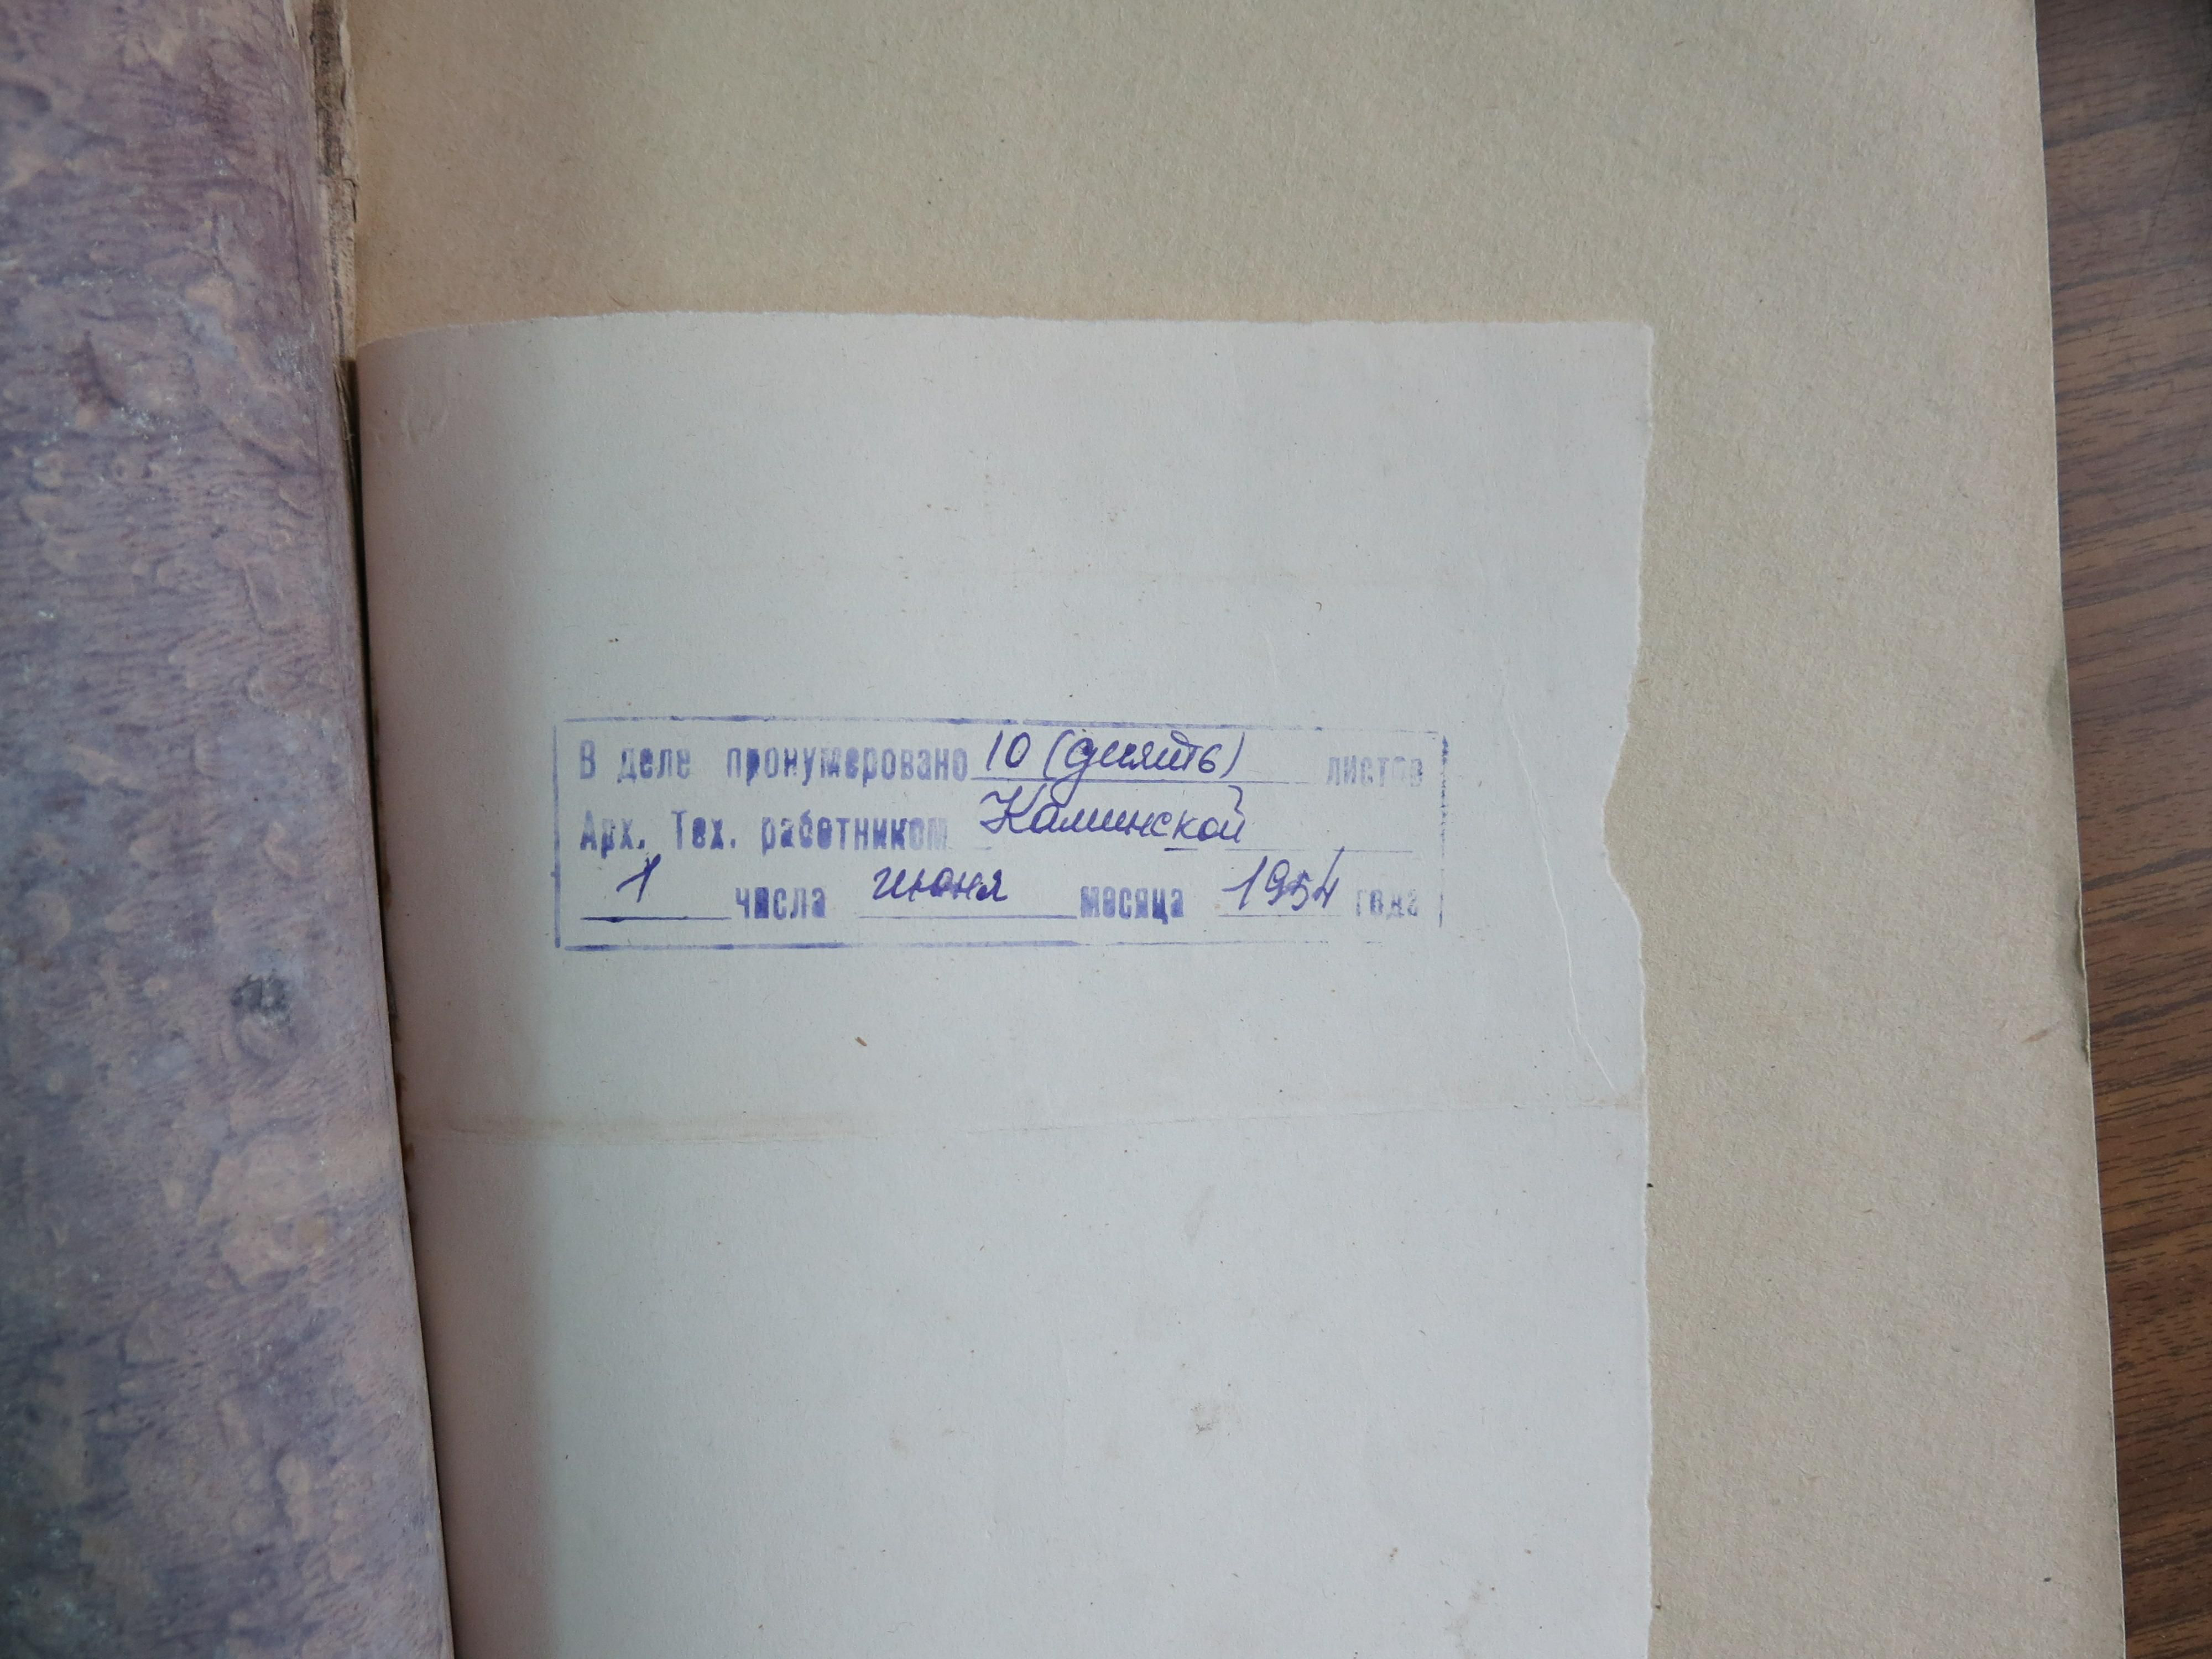 В деле пронумеровано 10 (десять) листов
Арх. Тех. работником Каминской
1 числа июня месяца 1954 года